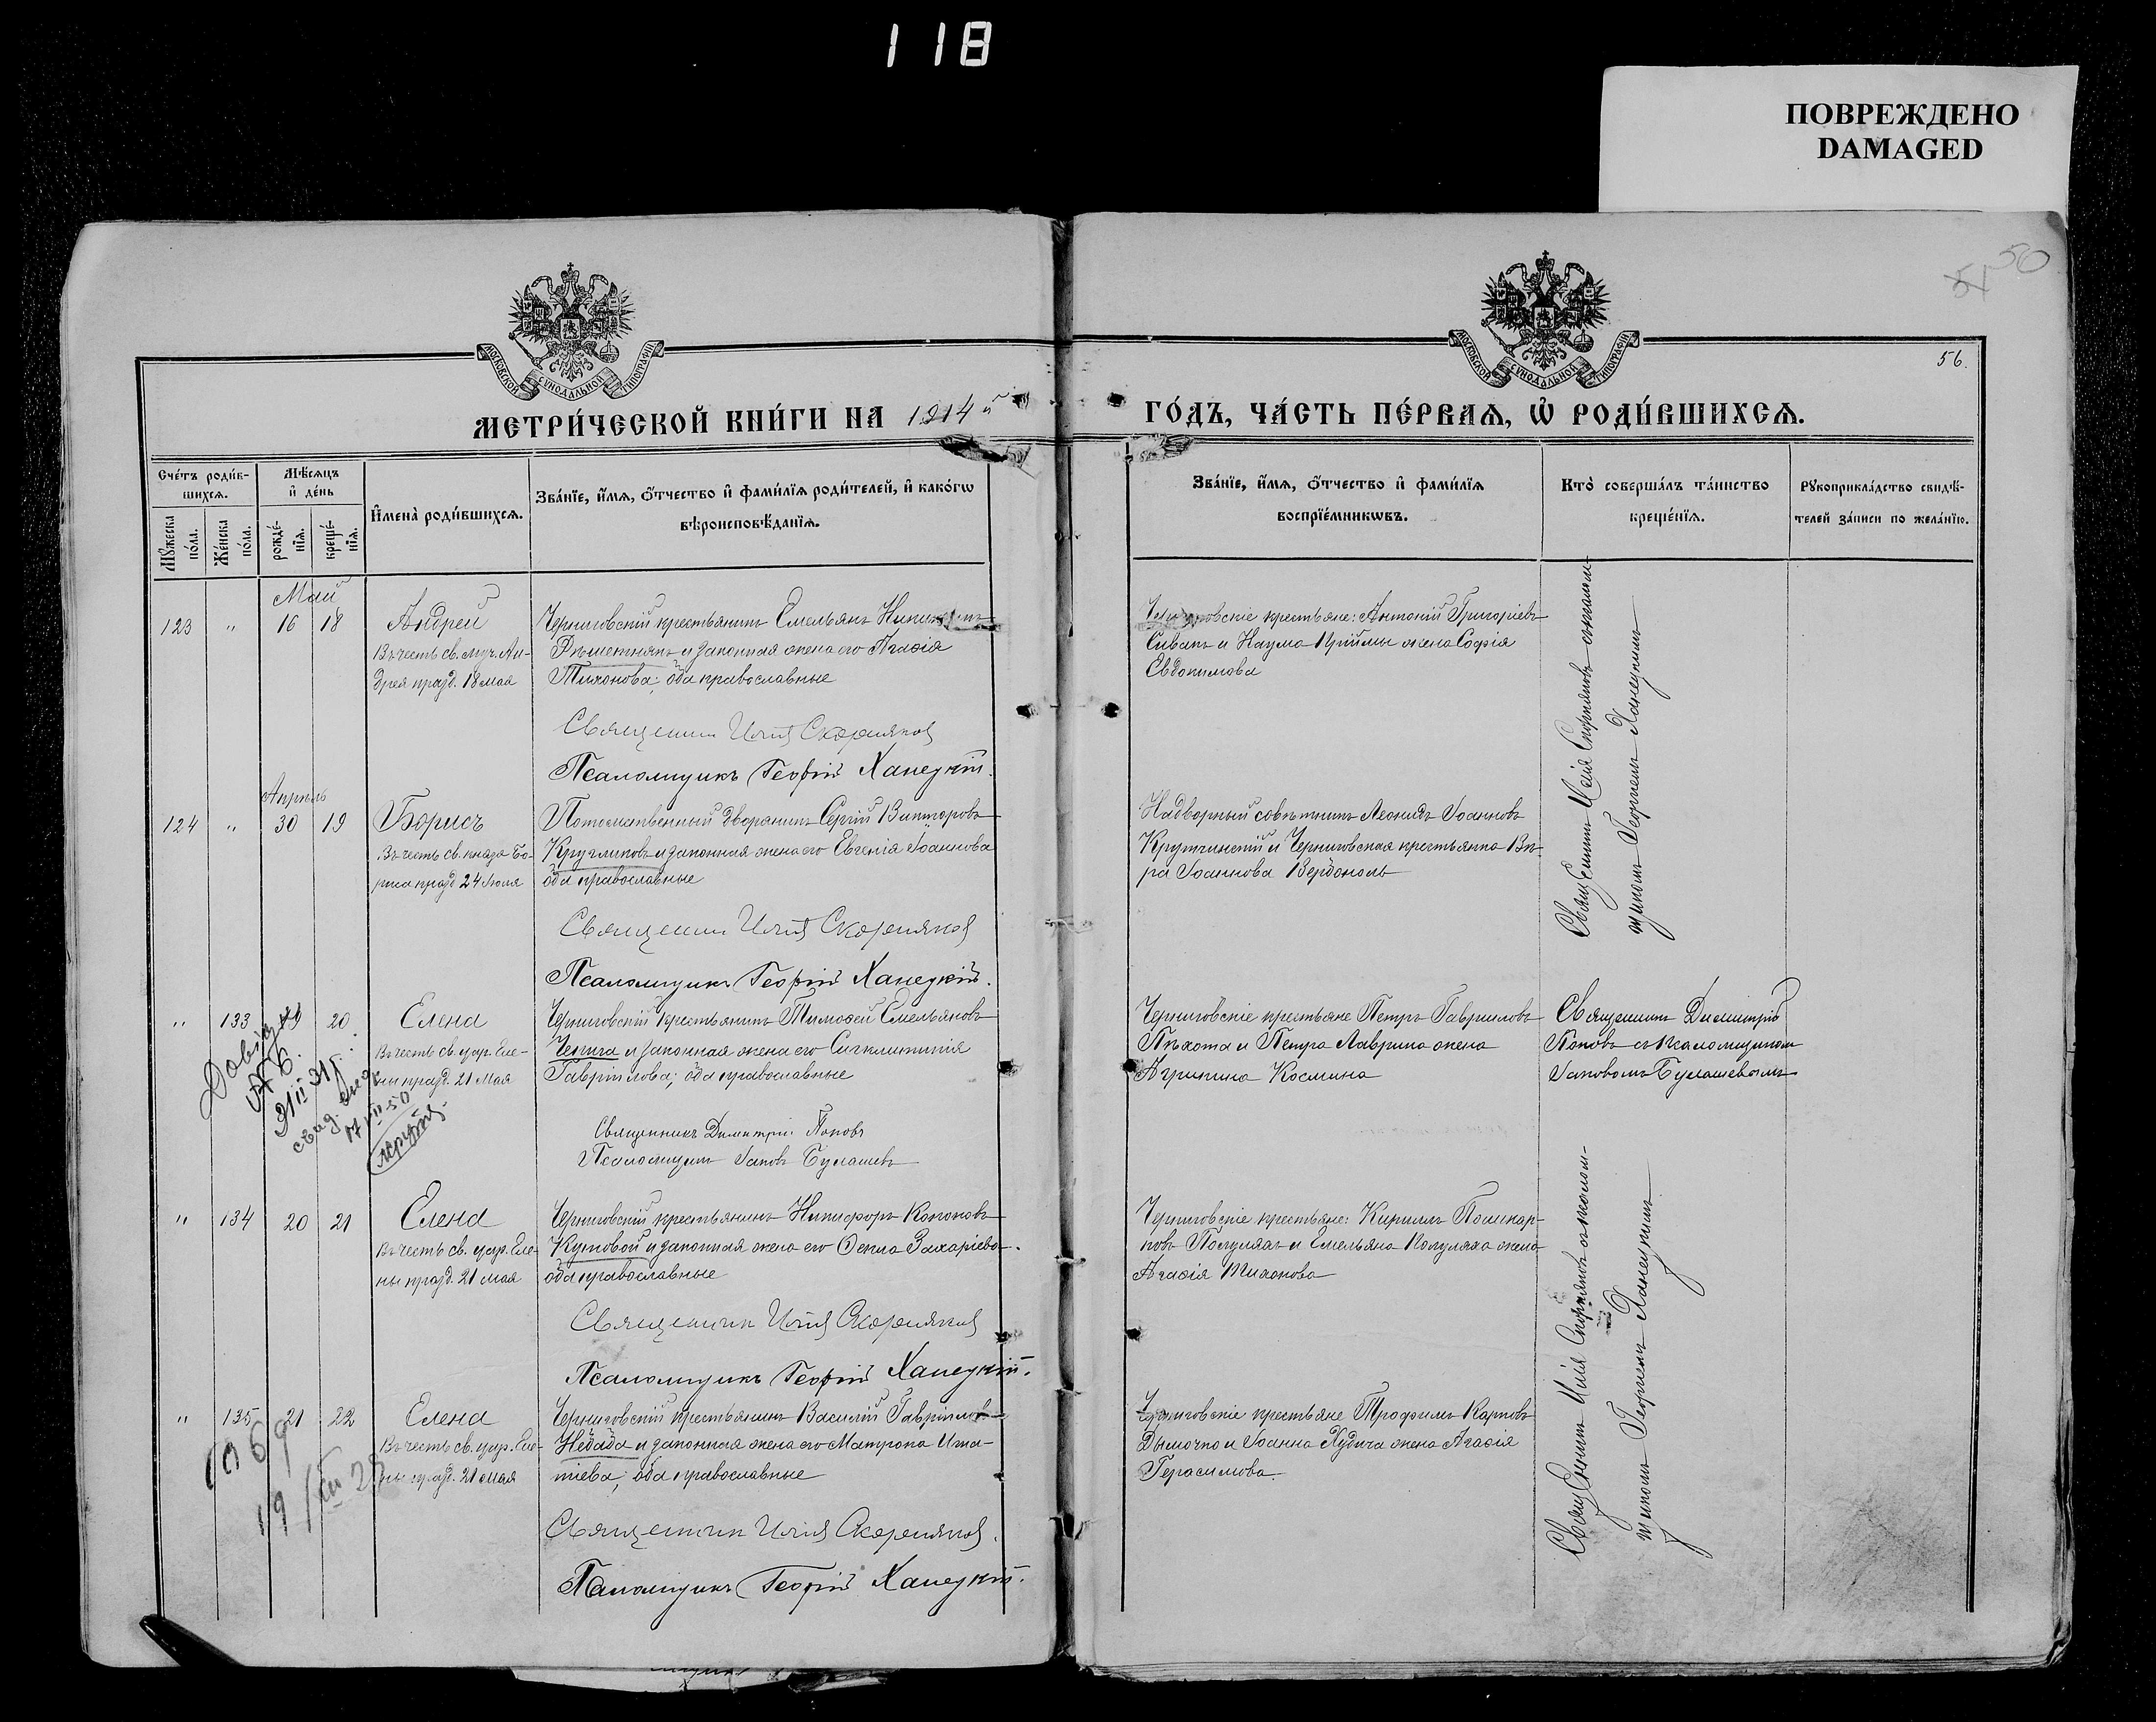 118
ПОВРЕЖДЕНО
DAMAGED
50
51
56.
МОСКОВСКОЙ СѴНОДАЛЬНОЙ ТИПОГРАФІИ
МОСКОВСКОЙ СѴНОДАЛЬНОЙ ТИПОГРАФІИ
МЕТРИ́ЧЕСКОЙ КНИ́ГИ НА 1914 й
ГО́ДЪ, ЧА́СТЬ ПЕ́РВАѦ, Ѡ҆ РОДИ́ВШИХСѦ.
Сче́тъ роди́в-
шихсѧ.
Мѣ́сѧцъ
и҆ де́нь
Мꙋ́жеска
по́ла.
Же́нска
по́ла.
рожде́-
нїѧ.
креще́-
нїѧ.
И҆мена̀ роди́вшихсѧ.
Зва́нїе, и҆́мѧ, ѻ҆́тчество и҆ фами́лїѧ роди́телей, и҆ како́гѡ
вѣроисповѣ́данїѧ.
Зва́нїе, и҆́мѧ, ѻ҆́тчество и҆ фами́лїѧ
воспрїе́мникѡвъ.
Кто̀ соверша́лъ та́инство
креще́нїѧ.
Рꙋкоприкла́дство свидѣ́-
телей за́писи по жела́нїю.
Май
123 " 16 18
Андрей
Въ честь св. муч. Ан-
дрея празд. 18 мая
Черниговскій крестьянинъ Емельянъ
Рѣшетнякъ и законная жена его Агафія
Тихонова; оба православные
Священникъ Илія Скорняков
Псаломщикъ Георгій Ханецкій.
Черниговскіе крестьяне: Антоній Григоріевъ
Сивакъ и Наума Приймы жена Софія
Евдокимова
Священникъ Илія Скорняковъ съ псалом-
щикомъ Георгіемъ Ханецкимъ
Апрѣль
124 " 30 19
Борисъ
Въ честь св. князя Бо-
риса празд. 24 Іюля
Потомственный дворянинъ Сергій Викторовъ
Кругликовъ и законная жена его Евгенія Іоаннова
оба православные
Священник Илія Скорняков
Псаломщикъ Георгій Ханецкій.
Надворный совѣтникъ Леонидъ Іоанновъ
Крутчинскій и Черниговская крестьянка Вѣ-
ра Іоаннова
" 133 19 20
Елена
Въ честь св. цар. Еле-
ны празд. 21 Мая
Черниговскій крестьянинъ Тимофей Емельяновъ
Чепига и законная жена его Сигклитикія
Гавріилова; оба православные
Священникъ Димитрій Поповъ
Псаломщикъ Іаковъ Булашевъ
Черниговскіе крестьяне Петръ Гавриловъ
Пѣхота и Петра Лаврика жена
Агрипина Космина
Священникъ Димитрій
Поповъ съ псаломщикомъ
Іаковомъ Булашевымъ
" 134 20 21
Елена
Въ честь св. цар. Еле-
ны празд. 21 мая
Черниговскій крестьянинъ Никифоръ Кононовъ
Кутовой и законная жена его Ѳекла Захаріева
оба православные
Священник Илія Скорняков
Псаломщикъ Георгій Ханецкій.
Черниговскіе крестьяне: Кириллъ Поликар-
повъ Погулякъ и Емельяна Погуляка жена
Агафія Тихонова
Священникъ Илія Скорняковъ съ псалом-
щикомъ Георгіемъ Ханецкимъ
" 135 21 22
Елена
Въ честь св. цар. Еле-
ны празд. 21 мая
Черниговскій крестьянинъ Василій Гавріиловъ
Небаба и законная жена его Матрона Игна-
тіева; оба православные
Священник Илія Скорняков.
Псаломщикъ Георгій Ханецкій.
Черниговскіе крестьяне Трофимъ Карповъ
Дымочко и Іоанна Худича жена Агафія
Герасимова